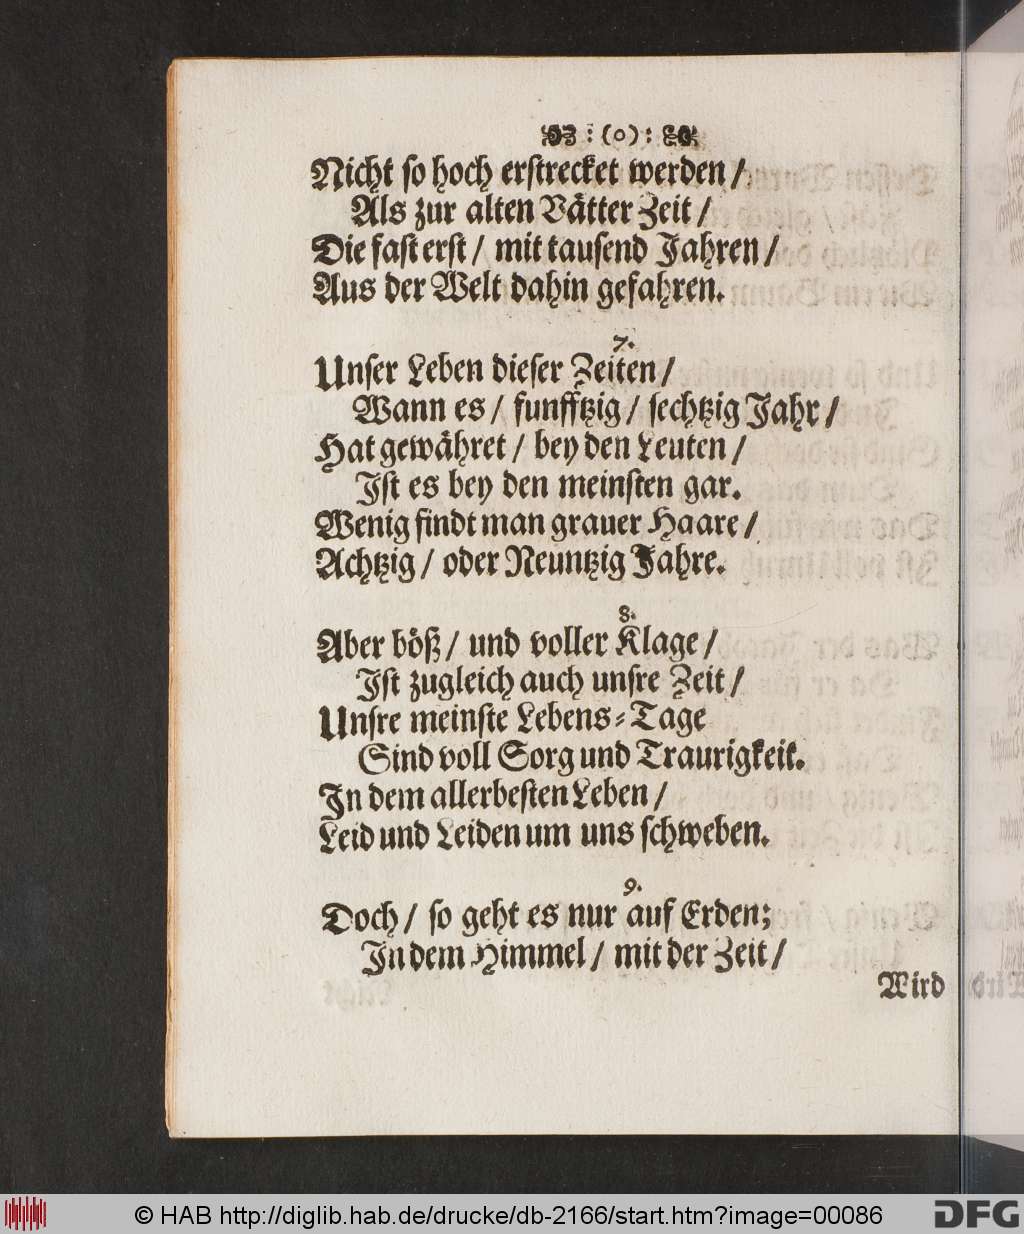 :(o):
Nicht so hoch erstrecket werden /
Als zur alten Vätter Zeit /
Die fast erst / mit tausend Jahren /
Aus der Welt dahin gefahren.
7.
Unser Leben dieser Zeiten /
Wann es / funfftzig / sechtzig Jahr /
Hat gewähret / bey den Leuten /
Ist es bey den meinsten gar.
Wenig findt man grauer Haare /
Achtzig / oder Neuntzig Jahre.
8.
Aber böß / und voller Klage /
Ist zugleich auch unsre Zeit /
Unsre meinste Lebens-Tage
Sind voll Sorg und Traurigkeit.
In dem allerbesten Leben /
Leid und Leiden um uns schweben.
9.
Doch / so geht es nur auf Erden;
In dem Himmel / mit der Zeit /
Wird
© HAB http://diglib.hab.de/drucke/db-2166/start.htm?image=00086
DFG